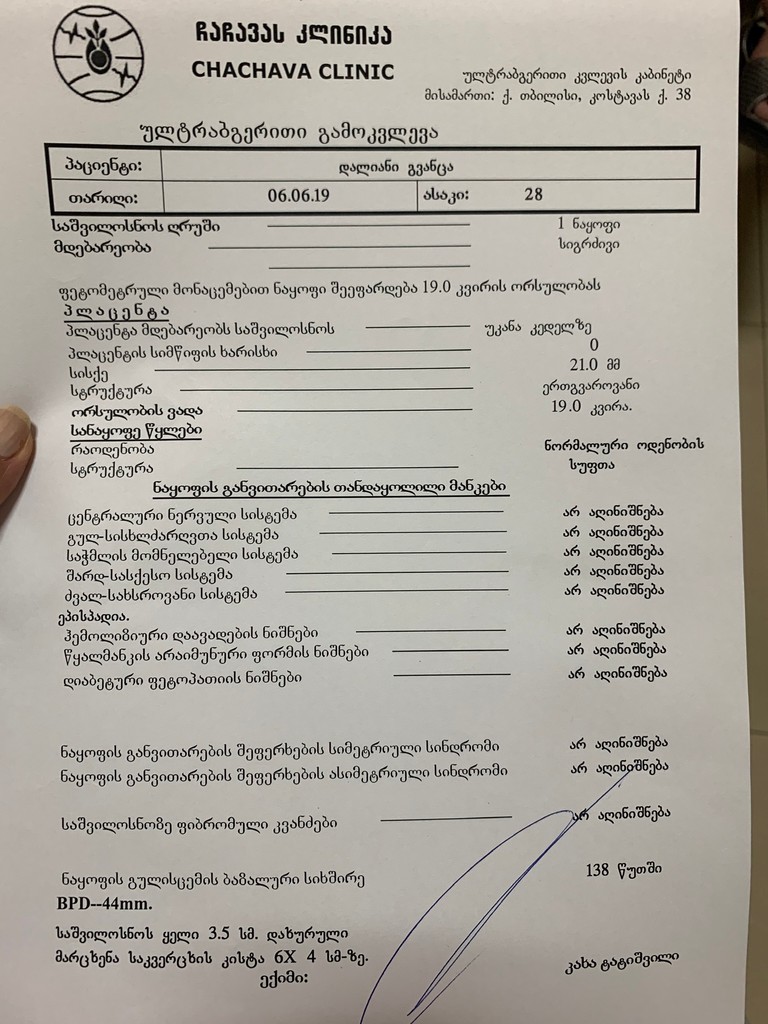 ჩაჩავას კლინიკა
CHACHAVA CLINIC
ულტრაბგერითი კვლევის კაბინეტი
მისამართი: ქ. თბილისი, კოსტავას ქ. 38
ულტრაბგერითი გამოკვლევა
პაციენტი: დალიანი გვანცა
თარიღი: 06.06.19 ასაკი: 28
საშვილოსნოს ღრუში 1 ნაყოფი
მდებარეობა სიგრძივი
ფეტომეტრული მონაცემებით ნაყოფი შეეფარდება 19.0 კვირის ორსულობას
პლაცენტა
პლაცენტა მდებარეობს საშვილოსნოს უკანა კედელზე
პლაცენტის სიმწიფის ხარისხი 0
სისქე 21.0 მმ
სტრუქტურა ერთგვაროვანი
ორსულობის ვადა 19.0 კვირა.
სანაყოფე წყლები
რაოდენობა ნორმალური ოდენობის
სტრუქტურა სუფთა
ნაყოფის განვითარების თანდაყოლილი მანკები
ცენტრალური ნერვული სისტემა არ აღინიშნება
გულ-სისხლძარღვთა სისტემა არ აღინიშნება
საჭმლის მომნელებელი სისტემა არ აღინიშნება
შარდ-სასქესო სისტემა არ აღინიშნება
ძვალ-სახსროვანი სისტემა არ აღინიშნება
ეპისპადია.
ჰემოლიზიური დაავადების ნიშნები არ აღინიშნება
წყალმანკის არაიმუნური ფორმის ნიშნები არ აღინიშნება
დიაბეტური ფეტოპათიის ნიშნები არ აღინიშნება
ნაყოფის განვითარების შეფერხების სიმეტრიული სინდრომი არ აღინიშნება
ნაყოფის განვითარების შეფერხების ასიმეტრიული სინდრომი არ აღინიშნება
საშვილოსნოზე ფიბრომული კვანძები არ აღინიშნება
ნაყოფის გულისცემის ბაზალური სიხშირე 138 წუთში
BPD--44mm.
საშვილოსნოს ყელი 3.5 სმ. დახურული
მარცხენა საკვერცხის კისტა 6X 4 სმ-ზე.
ექიმი: კახა ტატიშვილი